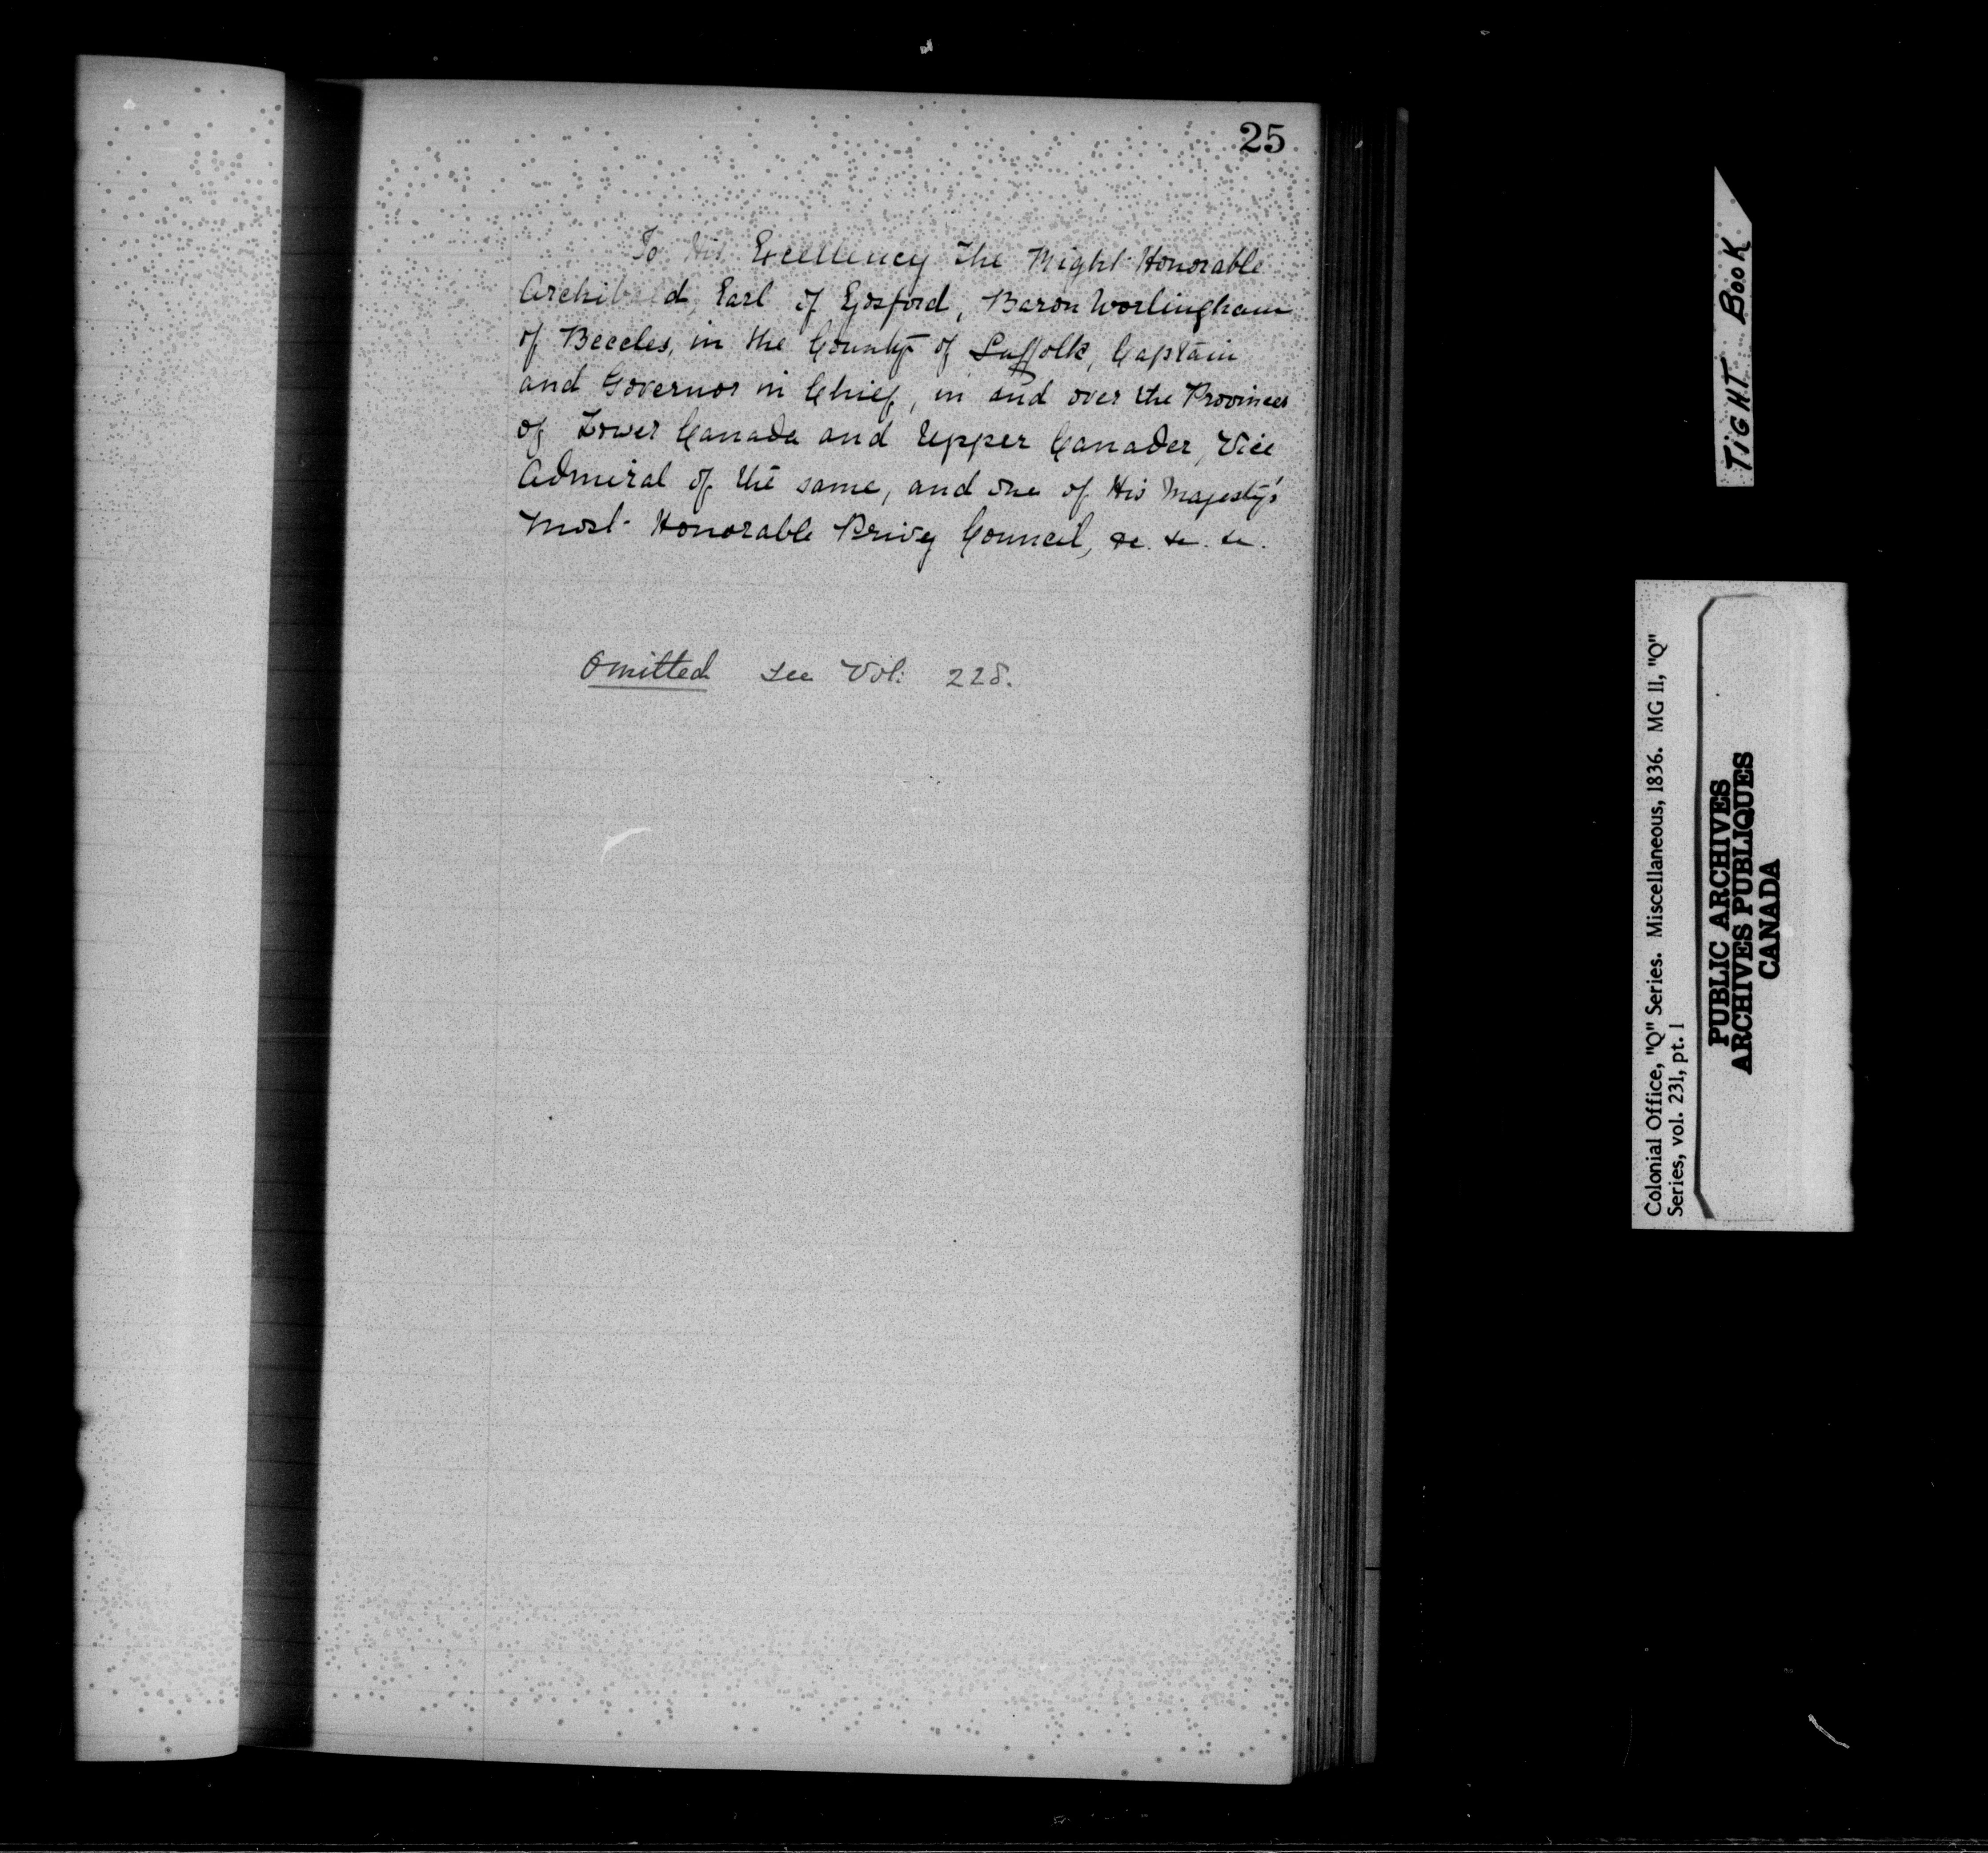 25
To His Excellency The Right Honorable
Archibald, Earl of Gosford, Baron Worlingham
of Beccles, in the County of Suffolk, Captain
and Governor in Chief, in and over the Provinces
of Lower Canada and Upper Canada, Vice
Admiral of the same, and one of His Majesty's
Most Honorable Privy Council, &c. &c. &c.
Omitted see Vol: 228.
TIGHT BOOK
Colonial Office, "Q" Series. Miscellaneous, 1836. MG 11, "Q"
Series, vol. 231, pt. 1
PUBLIC ARCHIVES
ARCHIVES PUBLIQUES
CANADA